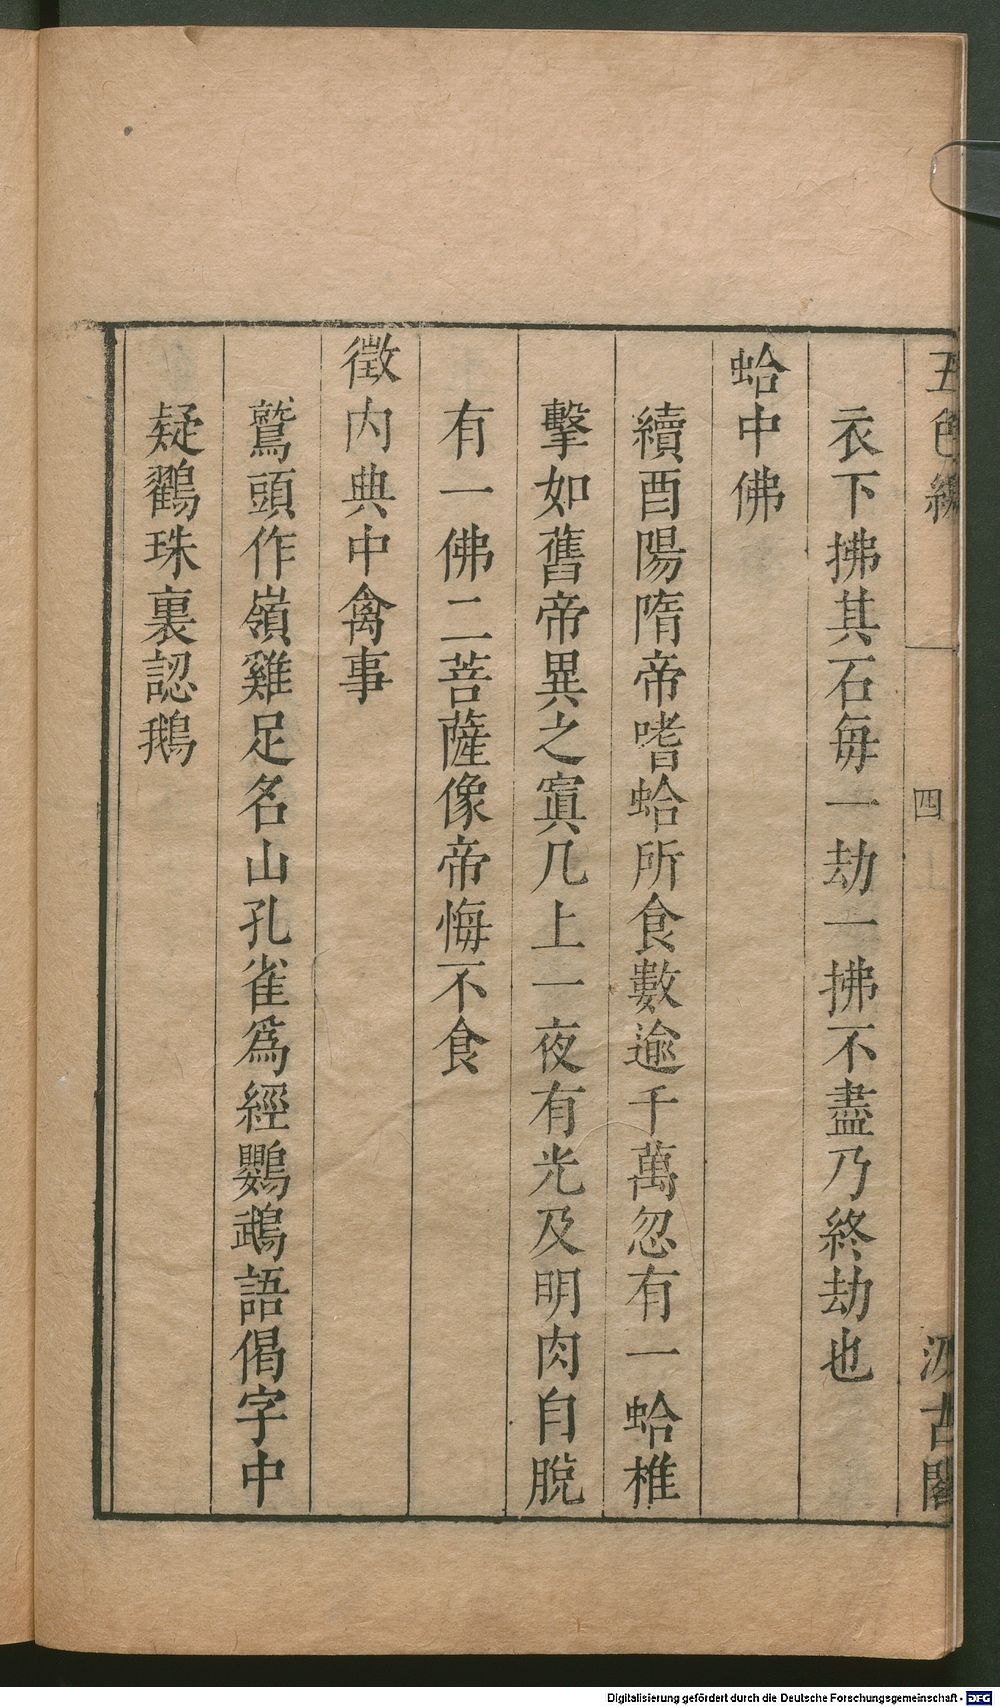 五色線
四
汲古閣
衣下拂其石每一劫一拂不盡乃終劫也
蛤中佛
續酉陽隋帝嗜蛤所食數逾千萬忽有一蛤椎
擊如舊帝異之寘几上一夜有光及明肉自脫
有一佛二菩薩像帝悔不食
徵内典中禽事
鷲頭作嶺雞足名山孔雀爲經鸚鵡語偈字中
疑鸛珠裏認鵝
Digitalisierung gefördert durch die Deutsche Forschungsgemeinschaft - DFG